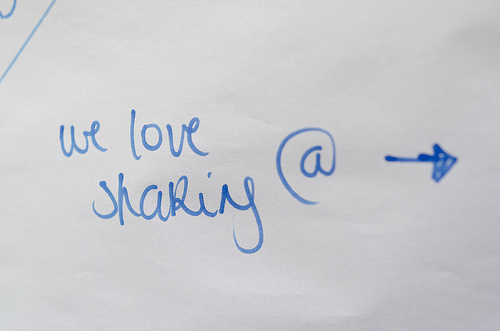 we love
sharing @ →